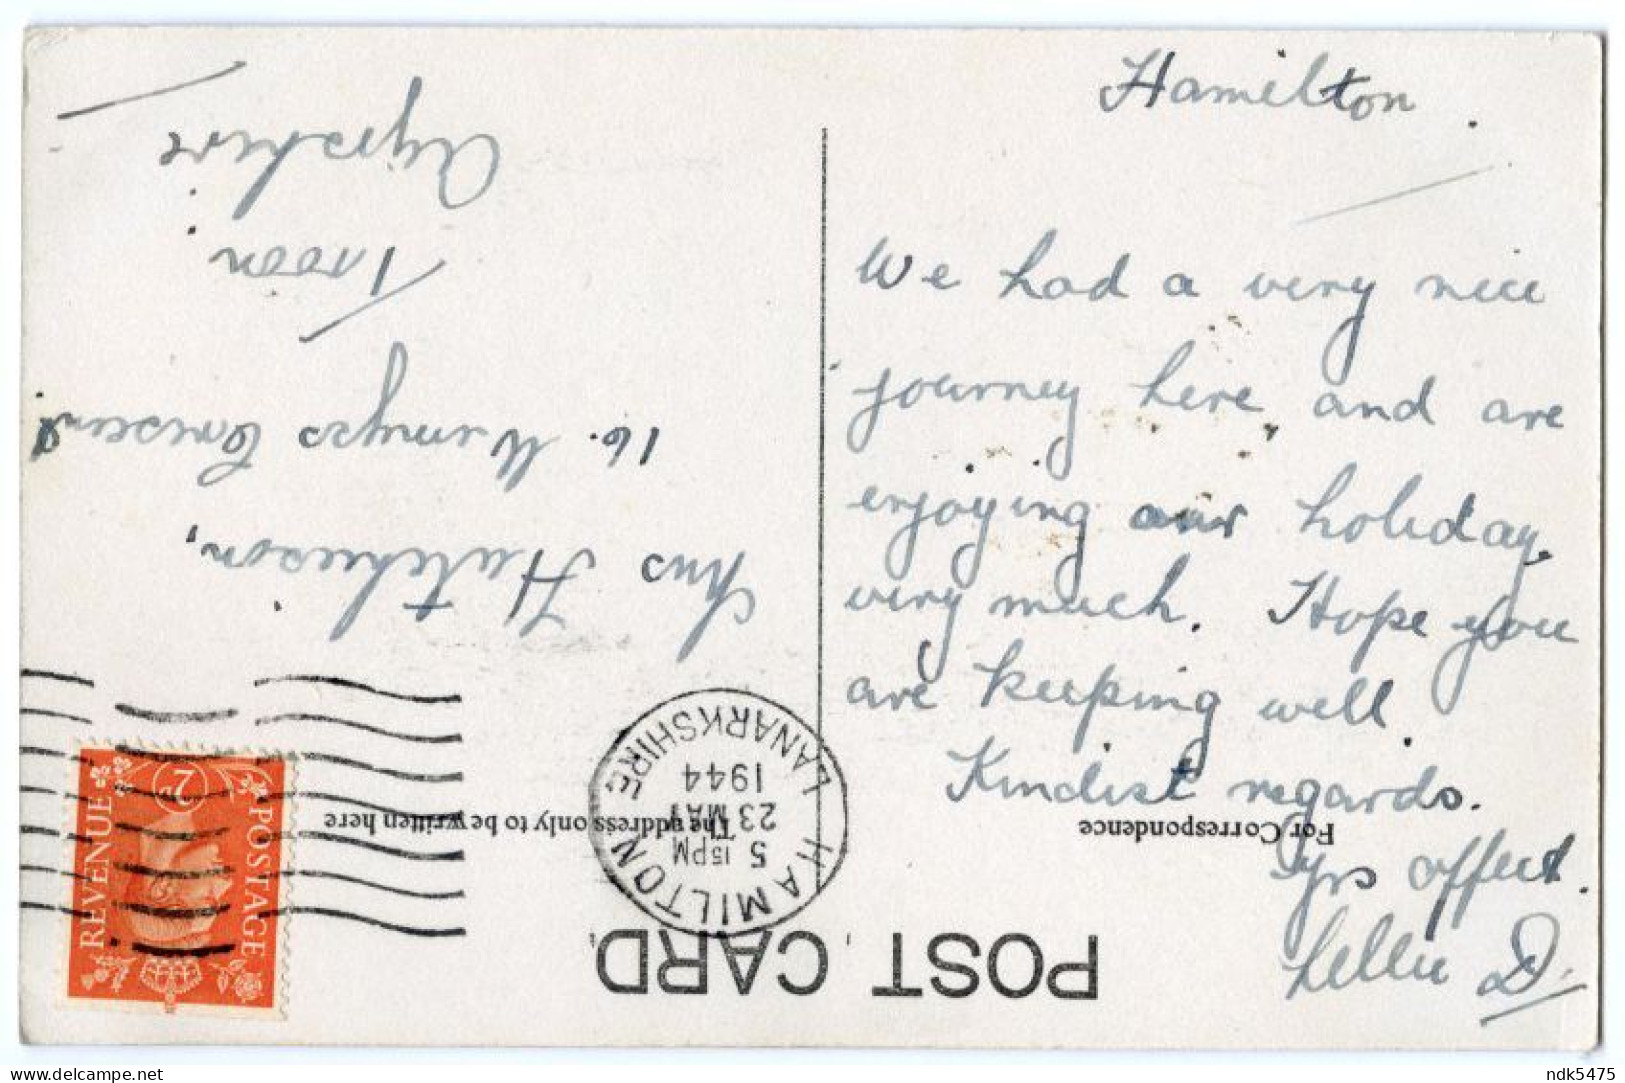 POST CARD
For Correspondence
The address only to be written here
HAMILTON
5 15PM
23 MAY
1944
LANARKSHIRE
POSTAGE
2D
REVENUE
Mrs Hutchison,
16. Wemyss Crescent
Troon
Ayrshire
Hamilton.
We had a very nice
journey here, and are
enjoying our holiday
very much. Hope you
are keeping well.
Kindest regards.
Yrs affect.
Lellie D.
delcampe.net
ndk5475